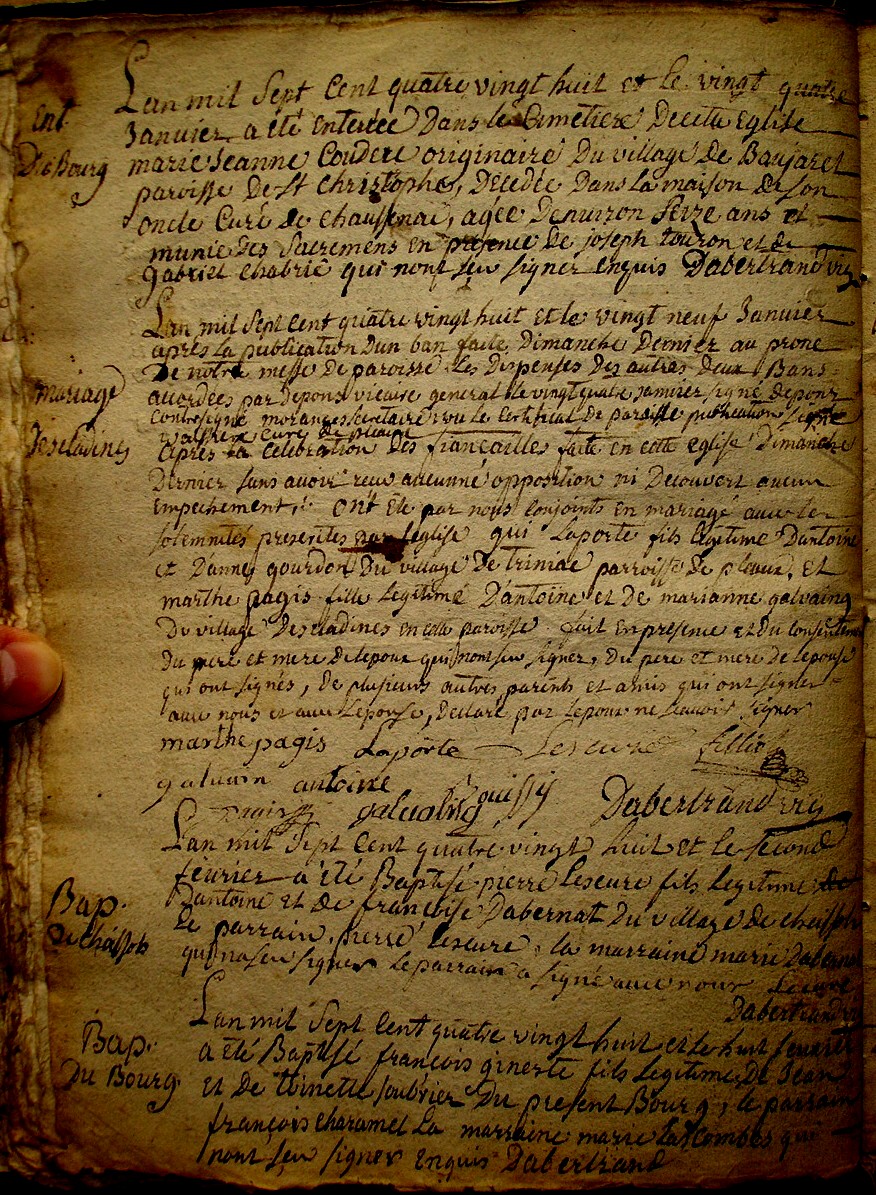 Lan mil Sept Cent quatre vingt huit et le vingt quatre
Ent
Du Bourg
Janvier a été enterrée Dans le Cimetiere Decette Eglise
marie Jeanne Couderc originaire Du village De Baujaret
paroisse De St Christophe, Decedée Dans la maison de son
oncle Curé de Chaussenac, agée Denviron Seize ans et
munie des Sacremens en presence De joseph touron et de
gabriel Chabrie qui nont seu signer enquis Dabertrand vic
Lan mil Sept Cent quatre vingt huit et le vingt neuf Janvier
après la publication Dun ban faite Dimanche Dernier au prone
De notre messe De paroisse les Dispenses Des autres deux Bans
Mariage
Descladines
accordées par Depons vicaire general le vingt quatre janvier signé depons
Contresigné moranges secretaire vu le Certificat De pareille publication signé
curé de pleaux
après la Celebration Des fiancailles faite en cette eglise Dimanche
Dernier sans avoir reçu aucunne opposition ni Decouvert aucun
empechement, ont été par nous Conjoints en mariage avec les
solemnités prescrites par leglise gui Laporte fils legitime Dantoine
et Danne gourdon Du village De triniac parroisse de pleaux, et
marthe pagis fille legitime Dantoine et de marianne galvaing
Du village Descladines en cette paroisse. fait en presence et Du Consentement
Du pere et mere De lepoux qui nont seu signer, Du pere et mere de lepouse
qui ont signés, De plusieurs autres parents et amis qui ont signer
avec nous et avec Lepouse, Declaré par lepoux ne scavoir signer
marthe pagis Laporte Lescure filliol
galvain antoine
pagis galvaing Dabertrand vic
Lan mil Sept Cent quatre vingt huit et le second
fevrier a été Baptisé pierre Lescure fils legitime
Bap.
De Chaissoles
Dantoine et de francoise Dabernat Du village de
le parrain pierre lescure, la marraine marie Dabernat
qui na seu signer le parrain a signé avec nous Lescure
Dabertrand vic
Lan mil Sept Cent quatre vingt huit et le huit fevrier
Bap.
Du Bourg
a été Baptisé françois ginerte fils Legitime De Jean
et de toinette soubrier Du present Bourg, le parrain
françois Charamel la marraine marie Lascombes qui
nont seu signer enquis Dabertrand